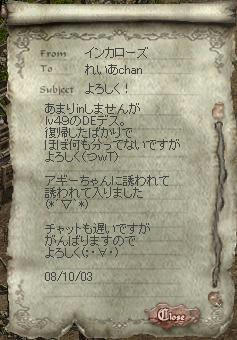 From インカローズ
To れいあchan
Subject よろしく！
あまりinしませんが
lv49のDEデス。
復帰したばかりで
ほぼ何も分ってないですが
よろしく(つwT)
アギーちゃんに誘われて
誘われて入りました
(*´∇`*)
チャットも遅いですが
がんばりますので
よろしく(;・∀・)
08/10/03
Close